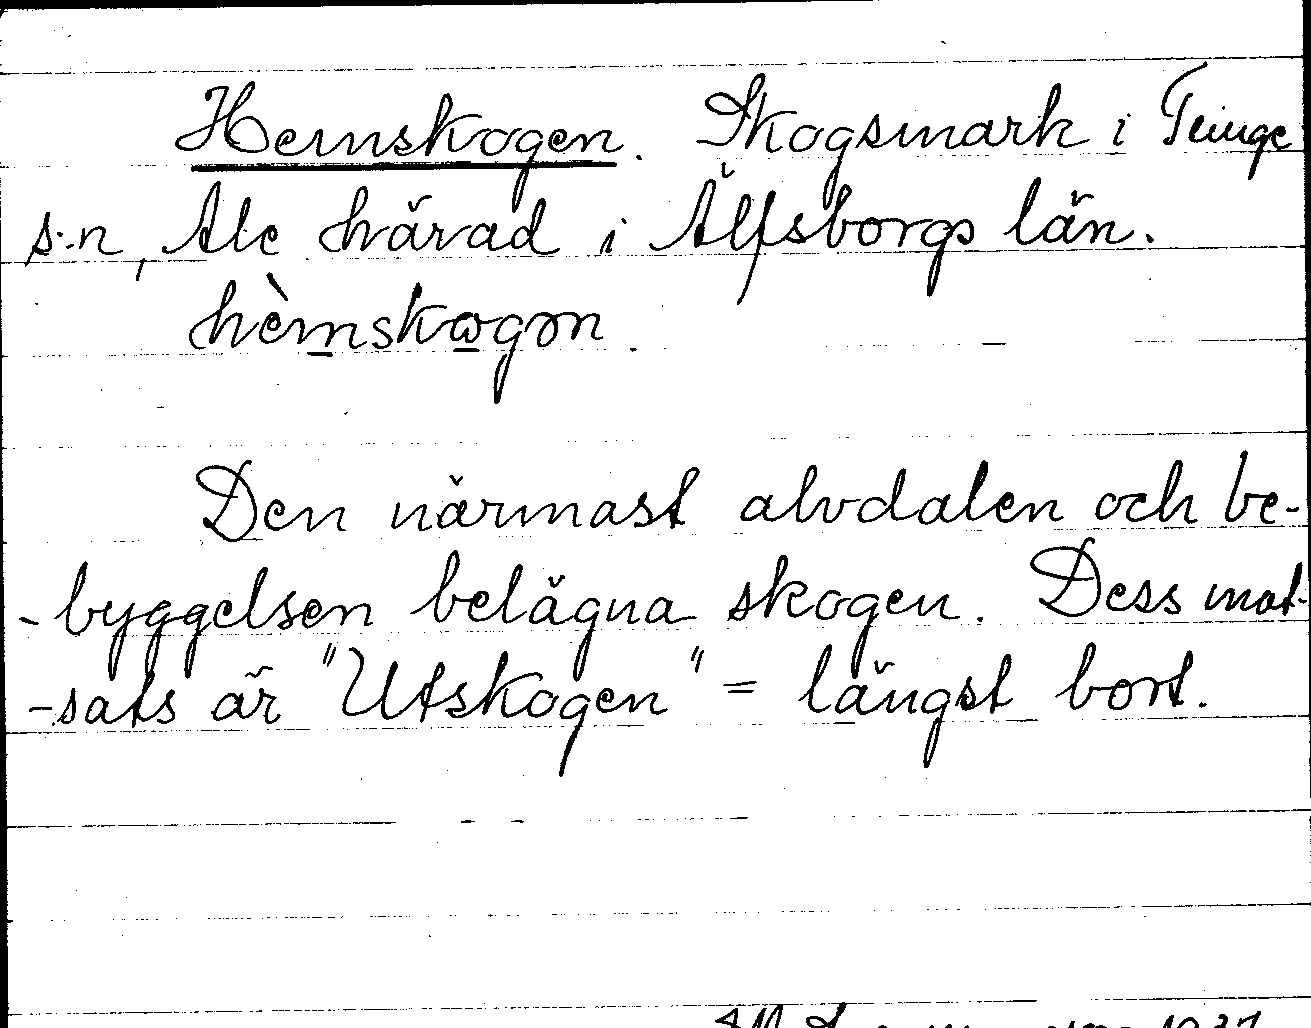 Hemskogen. Skogsmark i Tunge
s:n, Ale härad i Älfsborgs län.
hèmskogən.
Den närmast älvdalen och be-
-byggelsen belägna skogen. Dess mot-
-sats är "Utskogen" = längst bort.